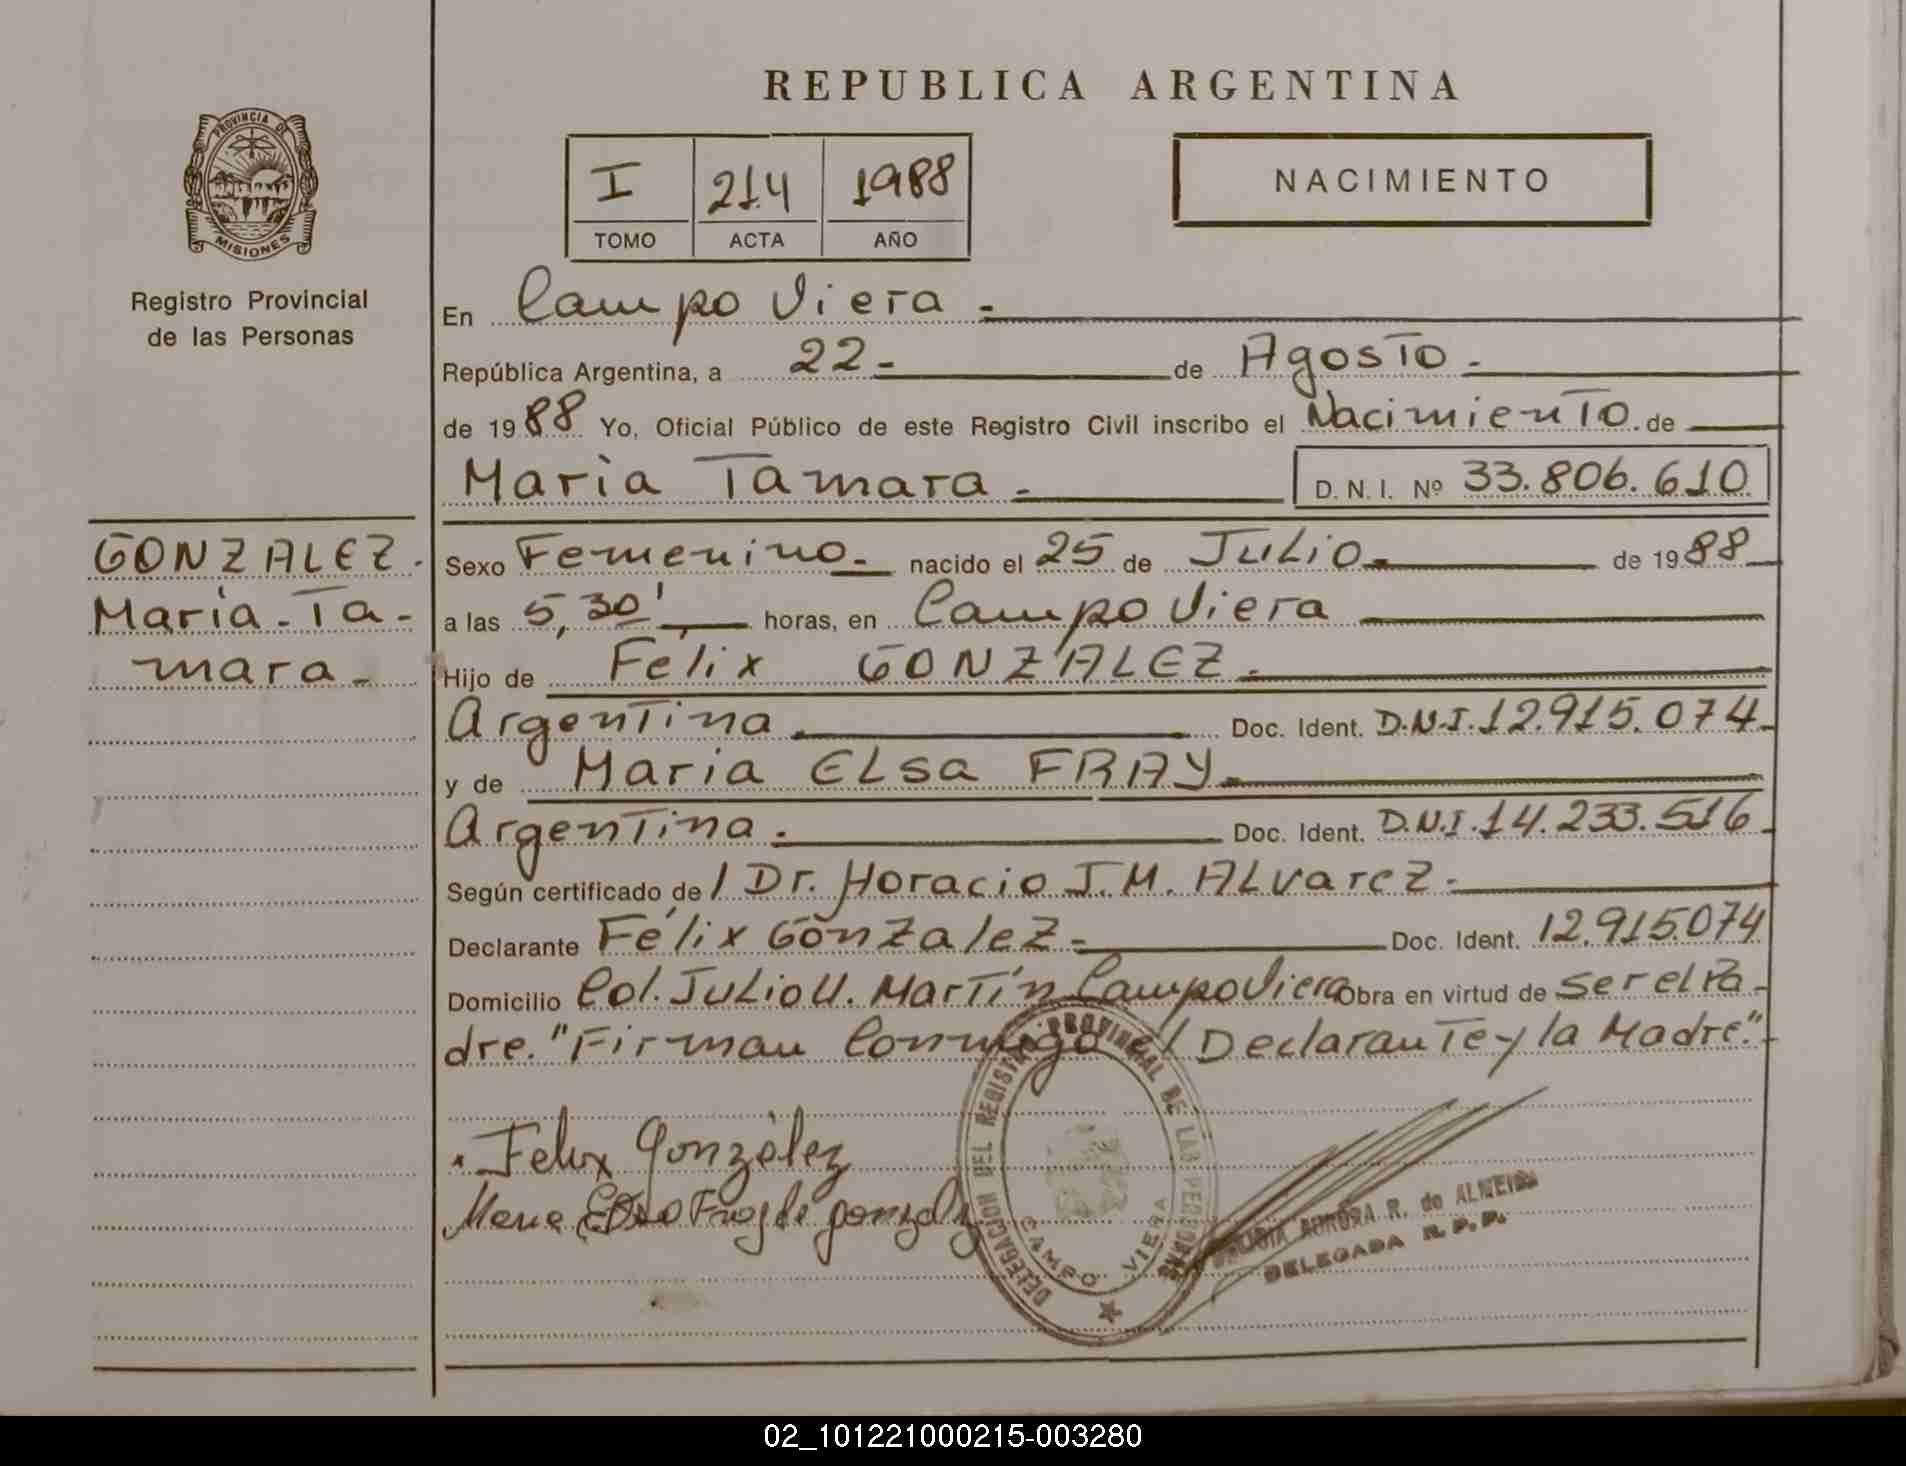 REPUBLICA ARGENTINA
PROVINCIA DE
MISIONES
Registro Provincial
de las Personas
I 214 1988
TOMO ACTA AÑO
NACIMIENTO
En Campo Viera -
República Argentina, a 22 - de Agosto -
de 19 88 Yo, Oficial Público de este Registro Civil inscribo el Nacimiento de
Maria Tamara - D. N. I. Nº 33.806.610
GONZALEZ.
María - Ta -
mara -
Sexo Femenino - nacido el 25 de Julio - de 19 88
a las 5,30' horas, en Campo Viera
Hijo de Félix GONZALEZ -
Argentina Doc. Ident. D.N.I. 12.915.074
y de Maria ELsa FRAY -
Argentina. Doc. Ident. D.N.I. 14.233.516
Según certificado de / Dr. Horacio J.M. ALvarez -
Declarante Félix Gónzalez - Doc. Ident. 12.915.074
Domicilio Col. Julio U. Martín Campo Viera Obra en virtud de ser el Pa -
dre. "Firman Conmigo el Declarante y la Madre."
Felix González
Maria Elsa Fray de gonzalez
DELEGACION DEL REGISTRO PROVINCIAL DE LAS PERSONAS
CAMPO VIERA
AURORA R. de ALMEIDA
DELEGADA R. P. P.
02_101221000215-003280